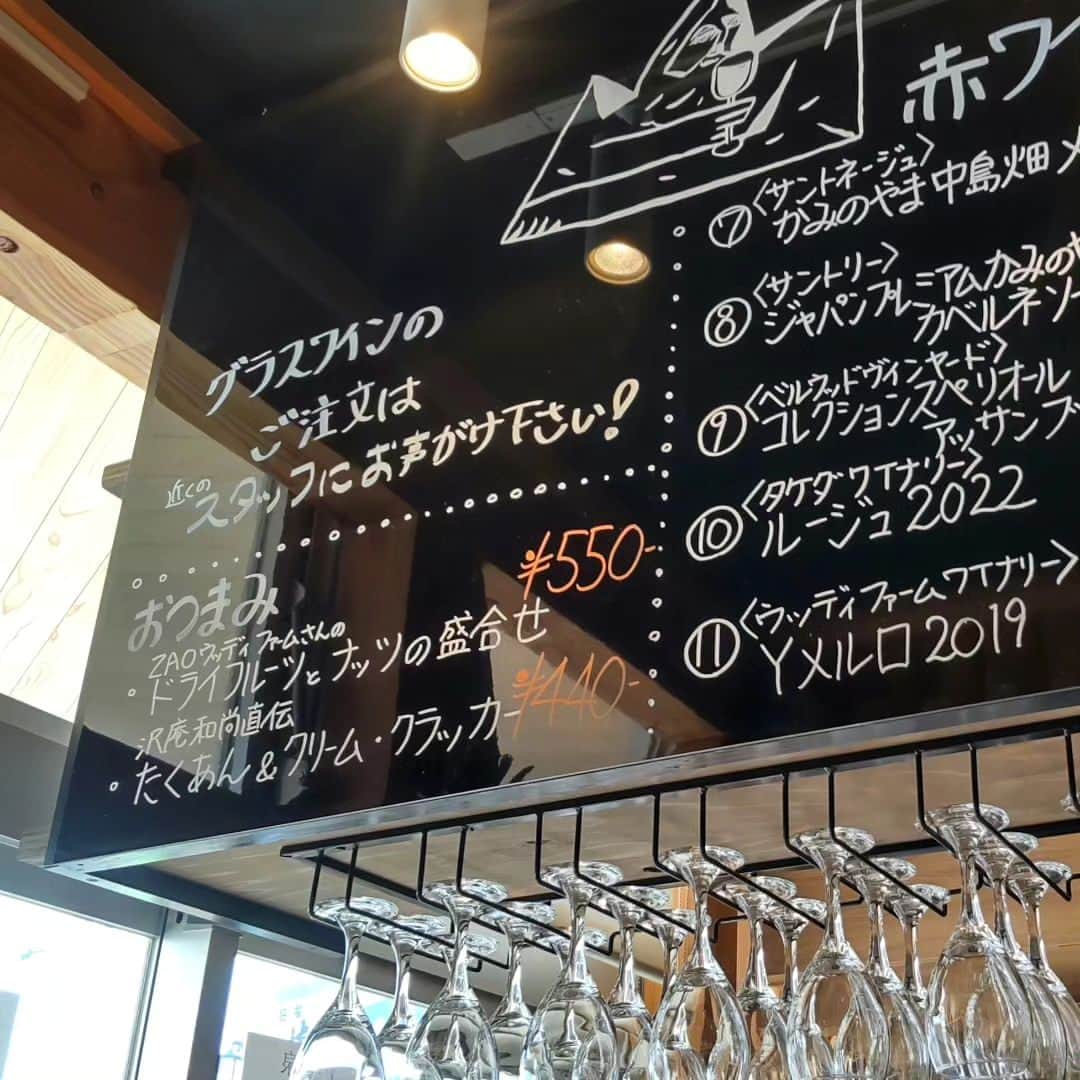 グラスワインの
ご注文は
近くの
スタッフにお声がけ下さい!
おつまみ
ZAOウッディファームさんの
・ドライフルーツとナッツの盛合せ
¥550-
沢庵和尚直伝
・たくあん&クリーム・クラッカー
¥440-
赤ワ
⑦〈サントネージュ〉
かみのやま中島畑メ
⑧〈サントリー〉
ジャパンプレミアムかみのや
カベルネソー
⑨〈ベルウッドヴィンヤード〉
コレクションスペリオール
アッサンブ
⑩〈タケダワイナリー〉
ルージュ2022
⑪〈ウッディファームワイナリー〉
Yメルロ2019